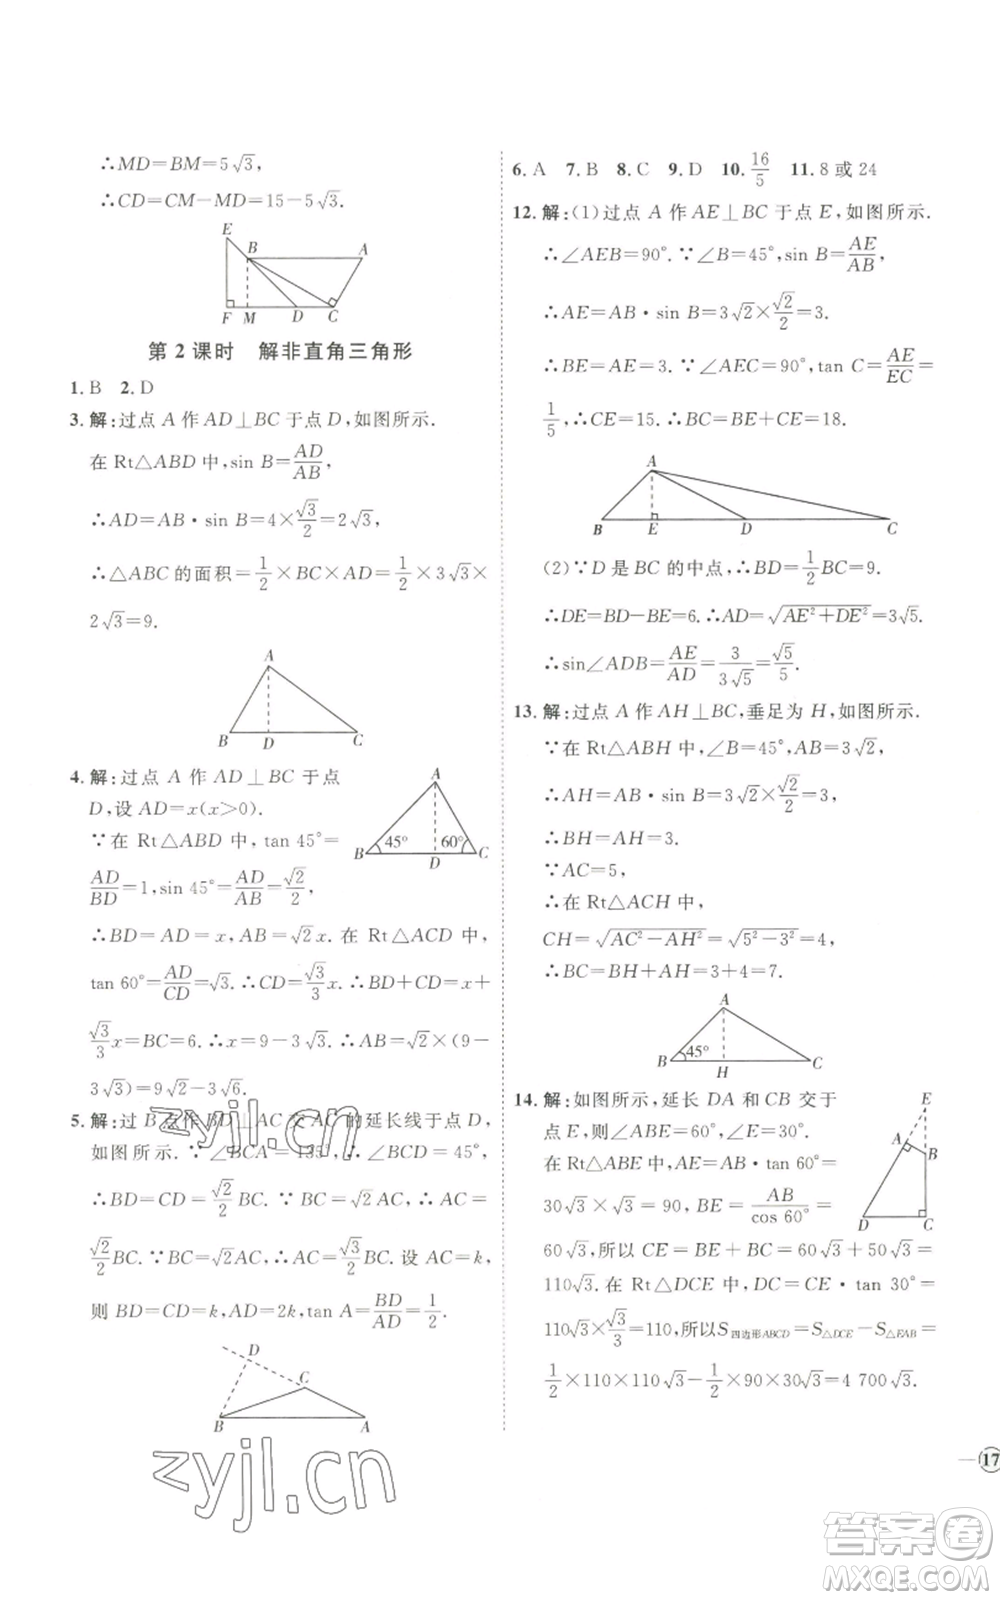 ∴MD=BM=5√3,
∴CD=CM−MD=15−5√3.
E
B
A
F M D C
第2课时 解非直角三角形
1.B 2.D
3.解:过点 A 作 AD⊥BC 于点 D,如图所示.
在 Rt△ABD 中,sin B=AD/AB,
∴AD=AB·sin B=4×√3/2=2√3,
∴△ABC 的面积=1/2×BC×AD=1/2×3√3×
2√3=9.
A
B D C
4.解:过点 A 作 AD⊥BC 于点
D,设 AD=x(x>0).
∵在 Rt△ABD 中,tan 45°=
AD/BD=1,sin 45°=AD/AB=√2/2,
A
45° 60°
B D C
∴BD=AD=x,AB=√2x. 在 Rt△ACD 中,
tan 60°=AD/CD=√3. ∴CD=√3/3x. ∴BD+CD=x+
√3/3x=BC=6. ∴x=9−3√3. ∴AB=√2×(9−
3√3)=9√2−3√6.
5.解:过 B 点作 BD⊥AC 交 AC 的延长线于点 D,
如图所示. ∵∠BCA=135°,∴∠BCD=45°,
∴BD=CD=√2/2BC. ∵BC=√2AC,∴AC=
√2/2BC. ∵BC=√2AC,∴AC=√3/2BC. 设 AC=k,
则 BD=CD=k,AD=2k,tan A=BD/AD=1/2.
D
C
B A
zyjl.cn
zyjl.cn
6.A 7.B 8.C 9.D 10.16/5 11.8 或 24
12.解:(1)过点 A 作 AE⊥BC 于点 E,如图所示.
∴∠AEB=90°. ∵∠B=45°,sin B=AE/AB,
∴AE=AB·sin B=3√2×√2/2=3.
∴BE=AE=3. ∵∠B=45°,tan C=AE/EC=
1/5,∴CE=15. ∴BC=BE+CE=18.
A
B E D C
(2)∵D 是 BC 的中点,∴BD=1/2BC=9.
∴DE=BD−BE=6. ∴AD=√(AE²+DE²)=3√5.
∴sin∠ADB=AE/AD=3/3√5=√5/5.
13.解:过点 A 作 AH⊥BC,垂足为 H,如图所示.
∵在 Rt△ABH 中,∠B=45°,AB=3√2,
∴AH=AB·sin B=3√2×√2/2=3,
∴BH=AH=3.
∵AC=5,
∴在 Rt△ACH 中,
CH=√(AC²−AH²)=√(5²−3²)=4,
∴BC=BH+AH=3+4=7.
A
45°
B H C
14.解:如图所示,延长 DA 和 CB 交于
点 E,则∠ABE=60°,∠E=30°.
在 Rt△ABE 中,AE=AB·tan 60°=
30√3×√3=90,BE=AB/cos 60°=
60√3,所以 CE=BE+BC=60√3+50√3=
E
A
B
D C
110√3. 在 Rt△DCE 中,DC=CE·tan 30°=
110√3×√3/3=110,所以S四边形ABCD=S△DCE−S△EAB=
1/2×110×110√3−1/2×90×30√3=4 700√3.
17
答案卷
MXQE.COM